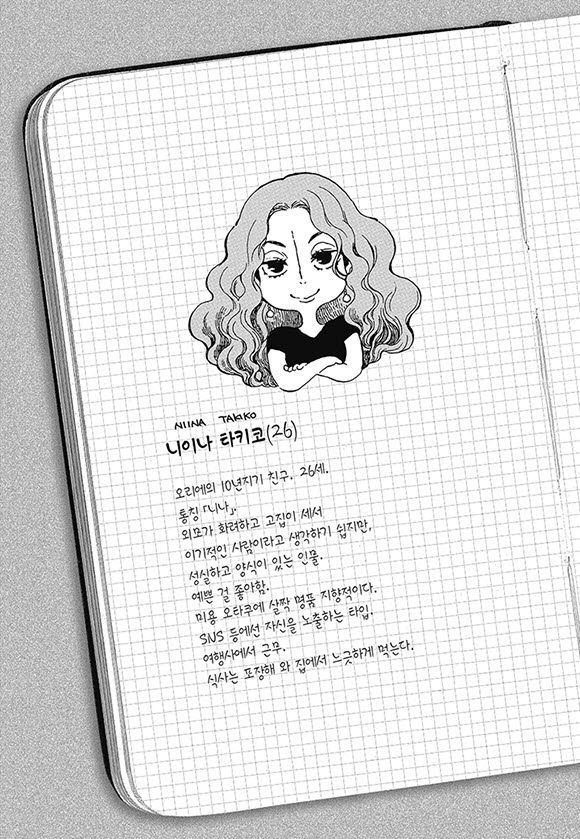 NIINA TAKIKO
니이나 타키코(26)
오리에의 10년지기 친구. 26세.
통칭 「니나」.
외모가 화려하고 고집이 세서
이기적인 사람이라고 생각하기 쉽지만,
성실하고 양식이 있는 인물.
예쁜 걸 좋아함.
미용 오타쿠에 살짝 명품 지향적이다.
SNS 등에선 자신을 노출하는 타입.
여행사에서 근무.
식사는 포장해 와 집에서 느긋하게 먹는다.